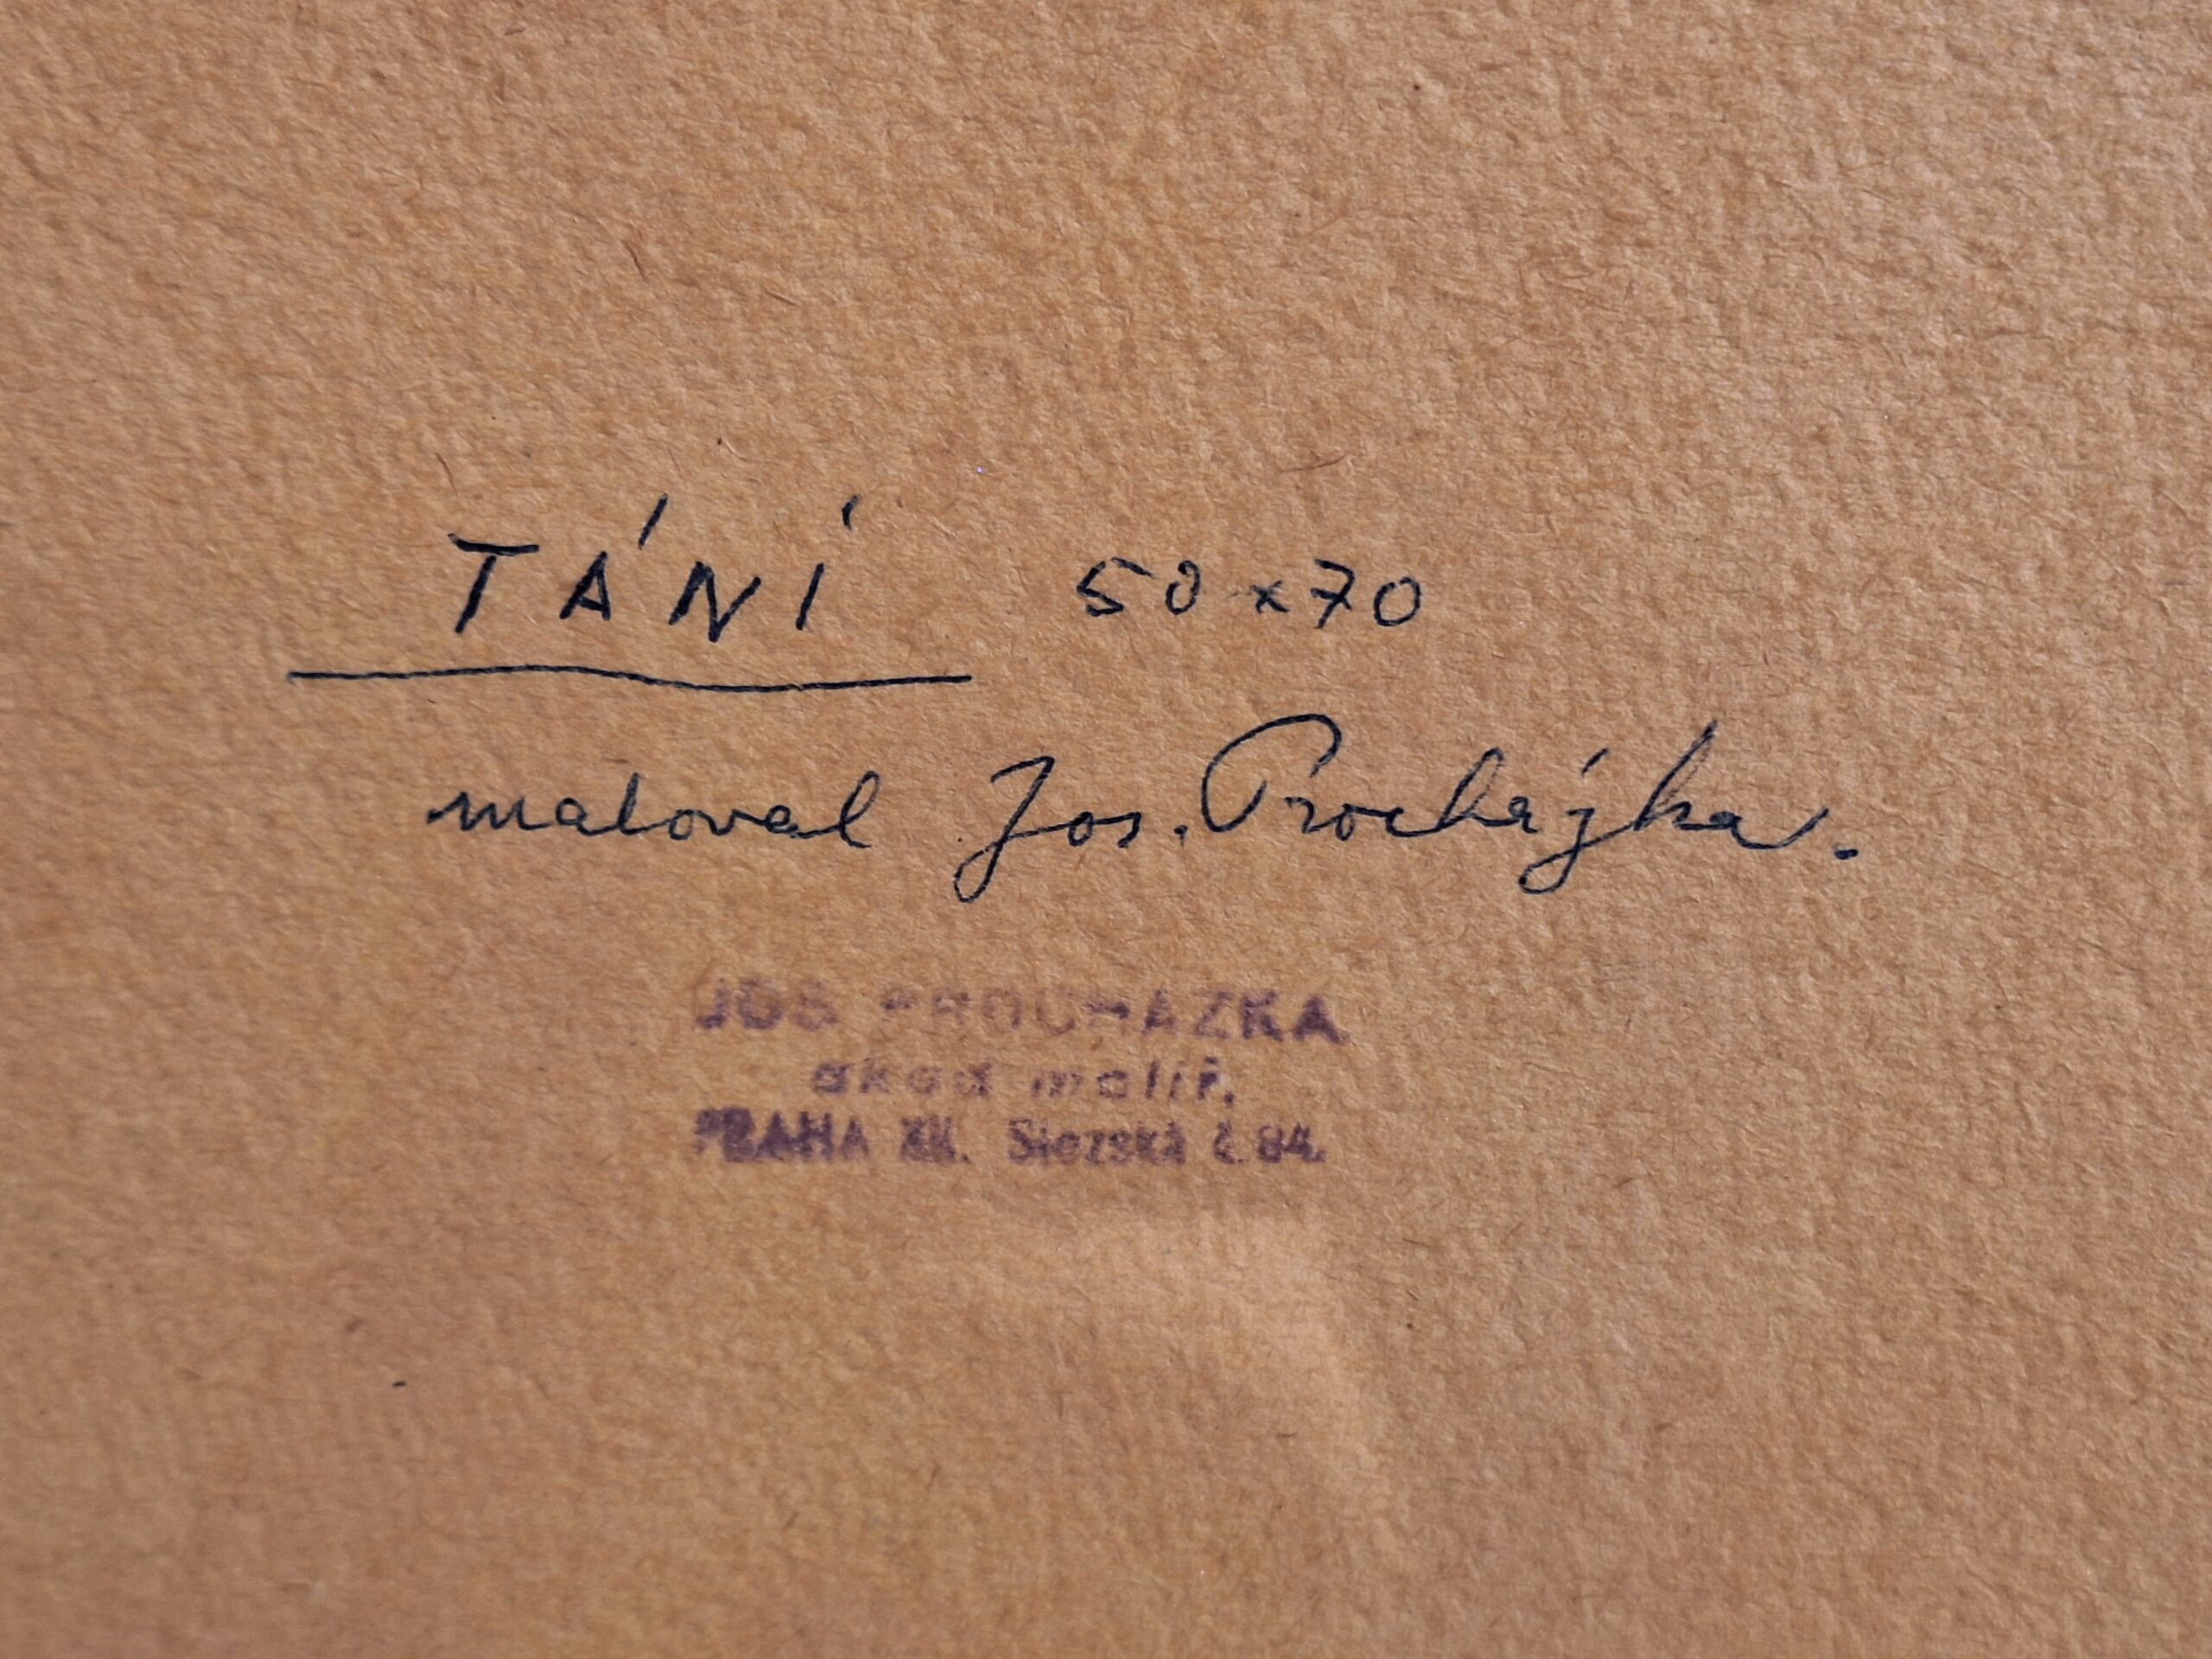 TÁNÍ 50x70
maloval Jos. Procházka.
JOS PROCHAZKA
akad malíř,
PRAHA XII. Slezská č. 84.